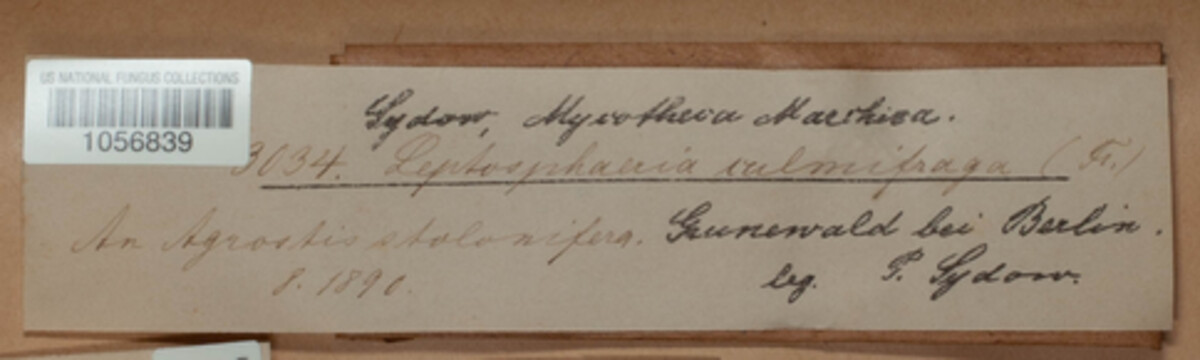 US NATIONAL FUNGUS COLLECTIONS
1056839
Sydow, Mycotheca Marchica.
3034. Leptosphaeria culmifraga (Fr.)
An Agrostis stolonifera. Grunewald bei Berlin.
8. 1890. leg. P. Sydow.